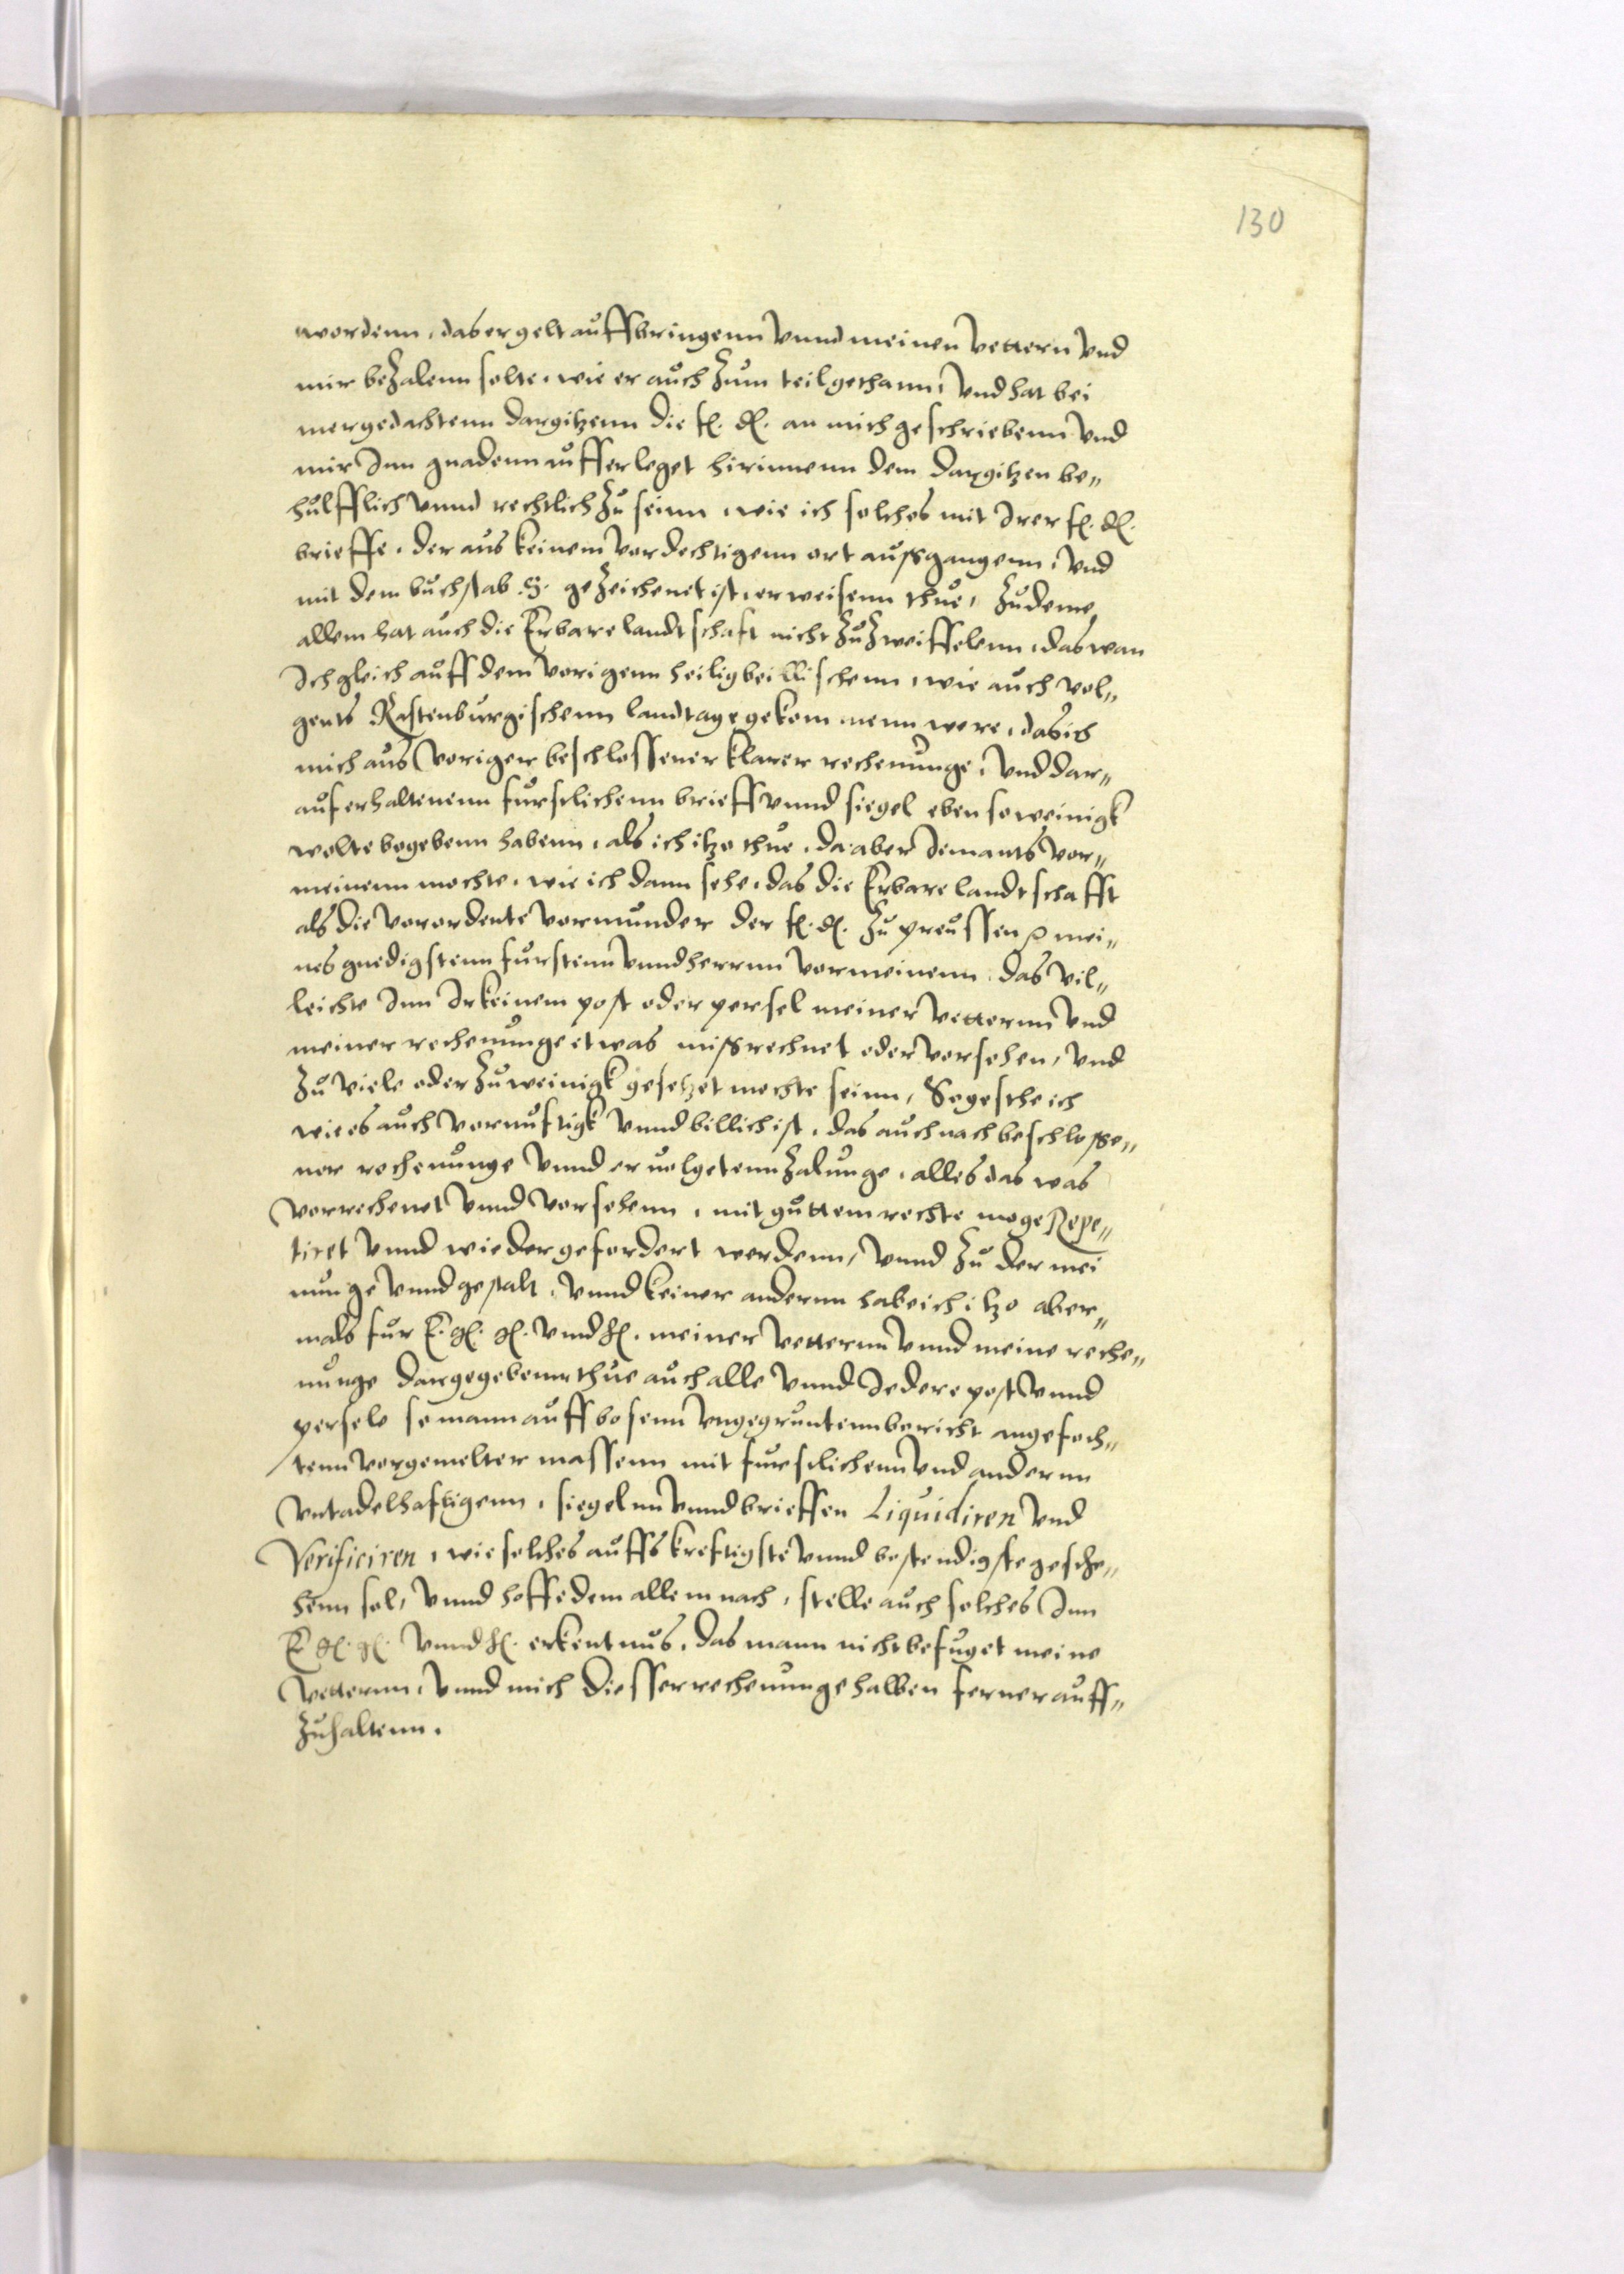 130
wordenn, das er gelt auffbringenn vnnd meinen vettern vnd
mir bezalenn solte, wie er auch zum teil gethann, vnd hat bei
mergedachtenn dargitzenn die f. d. an mich geschriebenn vnd
mir Inn gnadenn aufferleget hirinnenn dem dargitzen be„
hulfflich vnnd rechtlich zu seinn, wie ich solches mit Irer f. d.
brieffe, der aus keinem vordechtigenn ort aussgangenn, vnd
mit dem buchstab . gezeichenet ist, erweisenn thue, zu deme
allem hat auch die Erbare landtschaft nicht zu zweiffelenn, das wan
Ich gleich auff dem vorigenn heiligbeillischenn, wie auch vol„
gents Rastenburgischenn landtage gekommenn were, das ich
mich aus voriger beschlossener klarer rechenunge, vnd dar„
auf erhaltenenn furstlichenn brieff vnnd siegel eben so weinigk
wolte begebenn habenn, als ich itzo thue, da aber Iemants vor„
meinenn mochte, wie ich dann sehe, das die Erbare landtschafft
als die verordente vormunder der f. d. zu preussen mei„
nes gnedigstenn furstenn vnnd herrnn vormeinenn, das vil„
leichte Inn Irkeinem post oder persel meiner vetternn vnd
meiner rechenunge etwas missrechnet oder vorsehen, vnd
zu viele oder zu weinigk gesetzet mochte seinn, So gesthe ich
wie es auch vornuftigk vnnd billich ist, das auch nach beschlosse„
ner rechenunge vnnd eruolgetenn zalunge, alles das was
vorrechenet vnnd vorsehenn, mit guttem rechte moge Repe„
tiret vnnd wiedergefordert werdenn, vnnd zu der mei
nunge vnnd gestalt, vnnd keiner andernn habe ich itzo aber„
mals fur E. g. g. vnnd h. meiner vetternn vnnd meine reche„
nunge dargegebenn thue auch alle vnnd Iedere post vnnd
persele so mann auff bosenn vngegruntenn bericht angefoch„
tenn vorgemelter massenn mit furstlichenn vnd andernn
vntadelhaftigenn, siegelnn vnnd brieffen Liquidiren vnd
Verificiren, wie solches auffs kreftigste vnnd bestendigste gesche„
henn sol, vnnd hoffe dem allem nach, stelle auch solches Inn
E g. g. vnnd h. erkentnus, das mann nicht befuget meine
vetternn, vnnd mich diesser rechenunge halben ferner auff„
zuhaltenn.